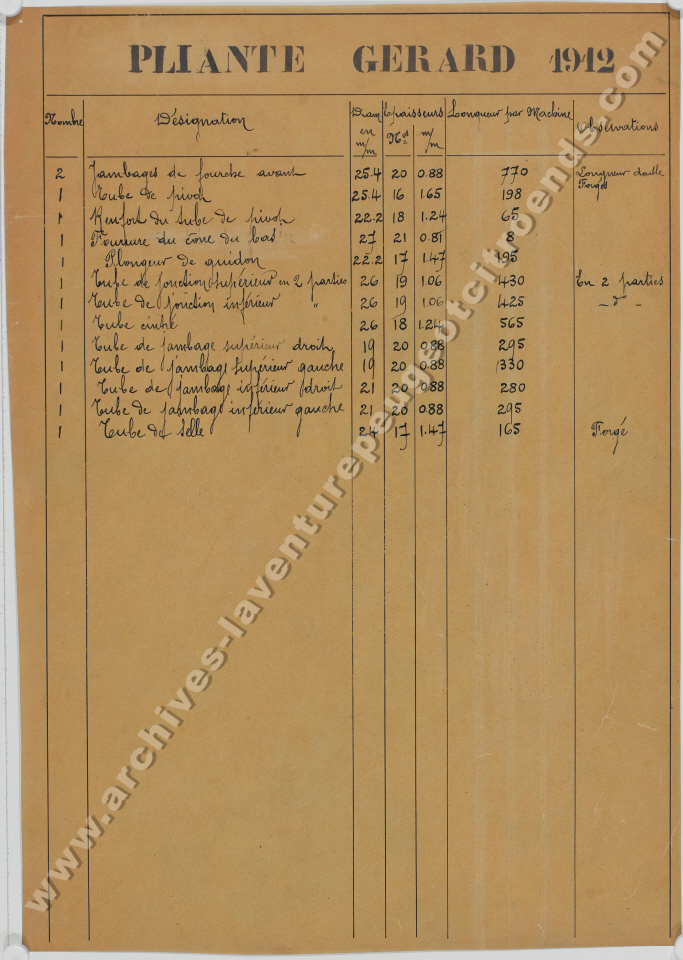 PLIANTE GERARD 1912
Nombre Désignation Diam en m/m Epaisseurs Nos m/m Longueur par Machine Observations
2 Jambages de fourche avant 25.4 20 0.88 770 Longueur d'aille Forgés
1 Tube de pivot 25.4 16 1.65 198
1 Renfort du tube de pivot 22.2 18 1.24 65
1 Fourrure du cone du bas 27 21 0.81 8
1 Plongeur de guidon 22.2 17 1.47 195
1 Tube de jonction supérieur en 2 parties 26 19 1.06 430 En 2 parties
1 Tube de jonction inférieur " 26 19 1.06 425 - d° -
1 Tube cintré 26 18 1.24 565
1 Tube de jambage supérieur droit 19 20 0.88 295
1 Tube de jambage supérieur gauche 19 20 0.88 330
1 Tube de jambage inférieur droit 21 20 0.88 280
1 Tube de jambage inférieur gauche 21 20 0.88 295
1 Tube de selle 24 17 1.47 165 Forgé
www.archives-laventurepeugeotcitroends.com